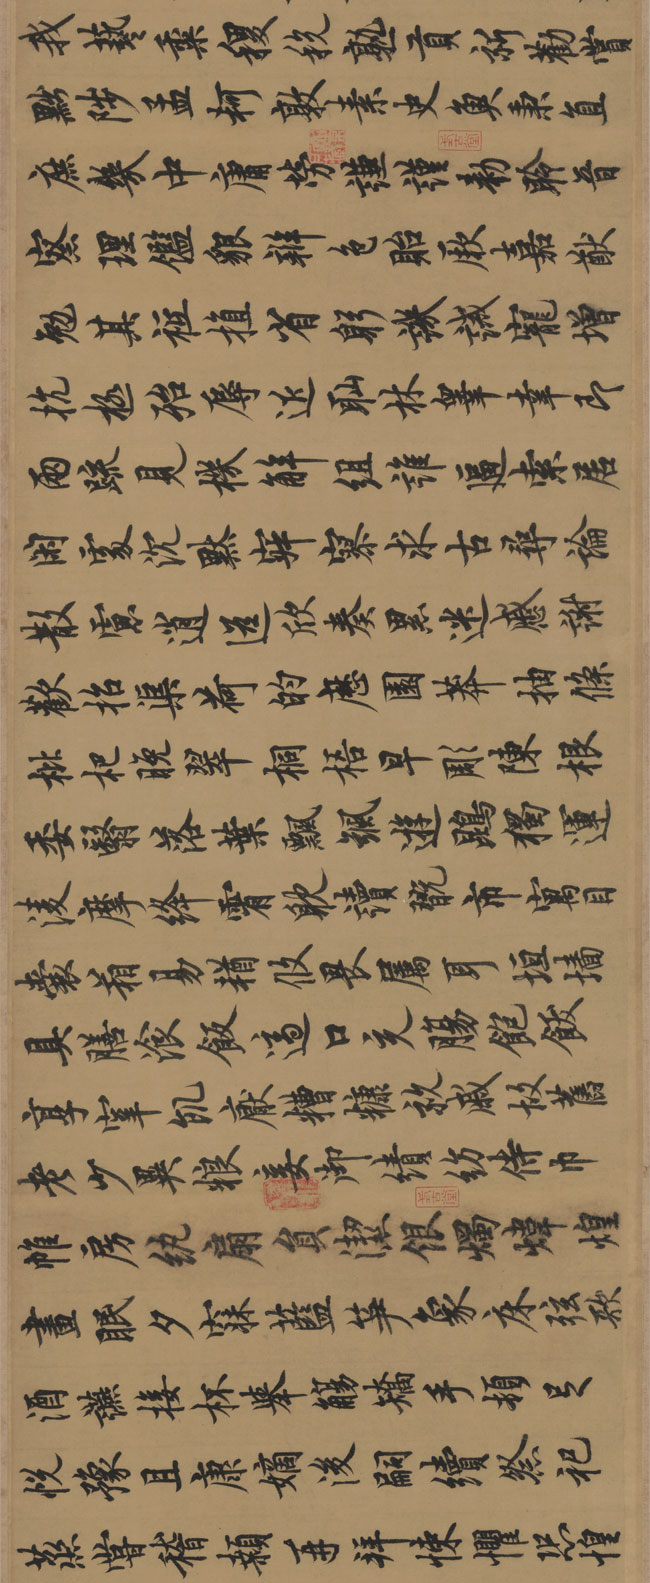 我藝黍稷稅熟貢新勸賞
黜陟孟軻敦素史魚秉直
庶幾中庸勞謙謹勅聆音
察理鑑貌辨色貽厥嘉猷
勉其祗植省躬譏誡寵增
抗極殆辱近恥林皋幸即
兩疏見機解組誰逼索居
閑處沉默寂寥求古尋論
散慮逍遙欣奏累遣慼謝
歡招渠荷的歷園莽抽條
枇杷晚翠桐梧早彫陳根
委翳落葉飄颻遊鵾獨運
凌摩絳霄耽讀翫市寓目
囊箱易輶攸畏屬耳垣墻
具膳飡飯適口充腸飽飫
享宰飢厭糟糠親戚故舊
老少異粮妾御績紡侍巾
帷房紈扇員潔銀燭煒煌
晝眠夕寐藍笋象床弦歌
酒讌接杯舉觴矯手頓足
悅豫且康嫡後嗣續祭祀
蒸嘗稽顙再拜悚懼恐惶